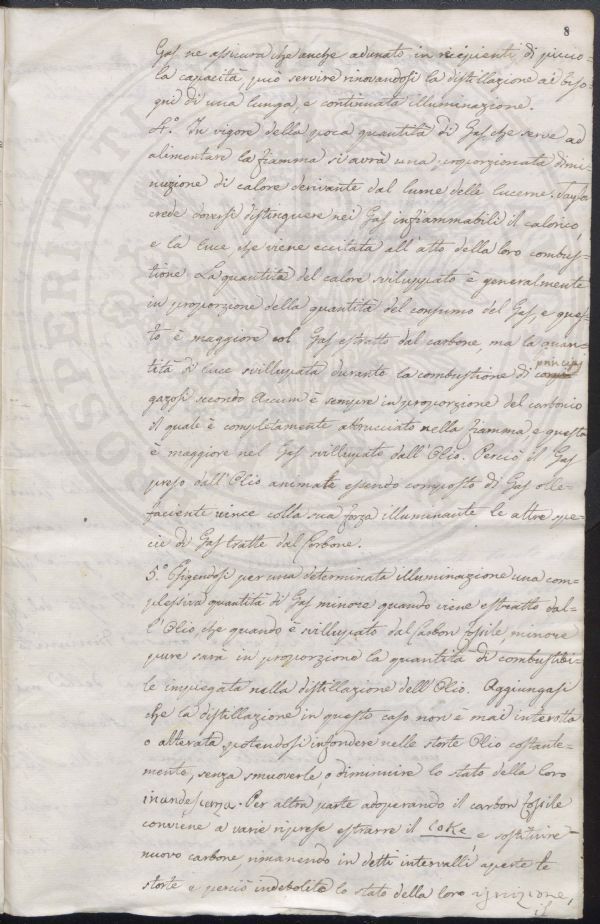 8
Gas ne assicura che anche adunato in recipienti di picco-
la capacità, può servire rinovandosi la distillazione ai biso-
gni di una lunga, e continuata illuminazione.
4.° In vigore della poca quantità di Gas, che serve ad
alimentare la fiamma si avrà una proporzionata dimi-
nuzione di calore derivante dal lume delle lucerne. Taylor
crede doversi distinguere nei Gas infiammabili il calorico,
e la luce che viene eccitata all'atto della loro combus-
tione. La quantità del calore sviluppato è generalmente
in proporzione della quantità del consumo del Gas, e ques-
to è maggiore col Gas estratto dal carbone, ma la quan-
tità di luce svillupata durante la combustione di principj
gazosi secondo Accum è sempre in proporzione del carbonio
il quale è completamente abbrucciato nella fiamma e questo
è maggiore nel Gas svillupato dall'Olio. Perciò il Gas
preso dall'Olio animale essendo composto di Gas olle-
faciente vince colla sua forza illuminante le altre spe-
cie di Gas tratte dal Carbone.
5.° Esigendosi per una determinata illuminazione una com-
plessiva quantità di Gas minore quando viene estratto dal-
l'Olio, che quando è svillupato dal Carbon fossile minore
pure sarà in proporzione la quantità di combustibi-
le impiegata nella distillazione dell'Olio. Aggiungasi
che la distillazione in questo caso non è mai interotta
o alterata, potendosi infondere nelle storte Olio costante-
mente, senza smuoverle, o diminuire lo stato della loro
incandescenza. Per altra parte adoperando il carbon fossile
conviene a varie riprese estrarre il Coke e sostituire
nuovo carbone, rimanendo in detti intervalli aperte le
storte e perciò indebolito lo stato della loro ignizione,
il